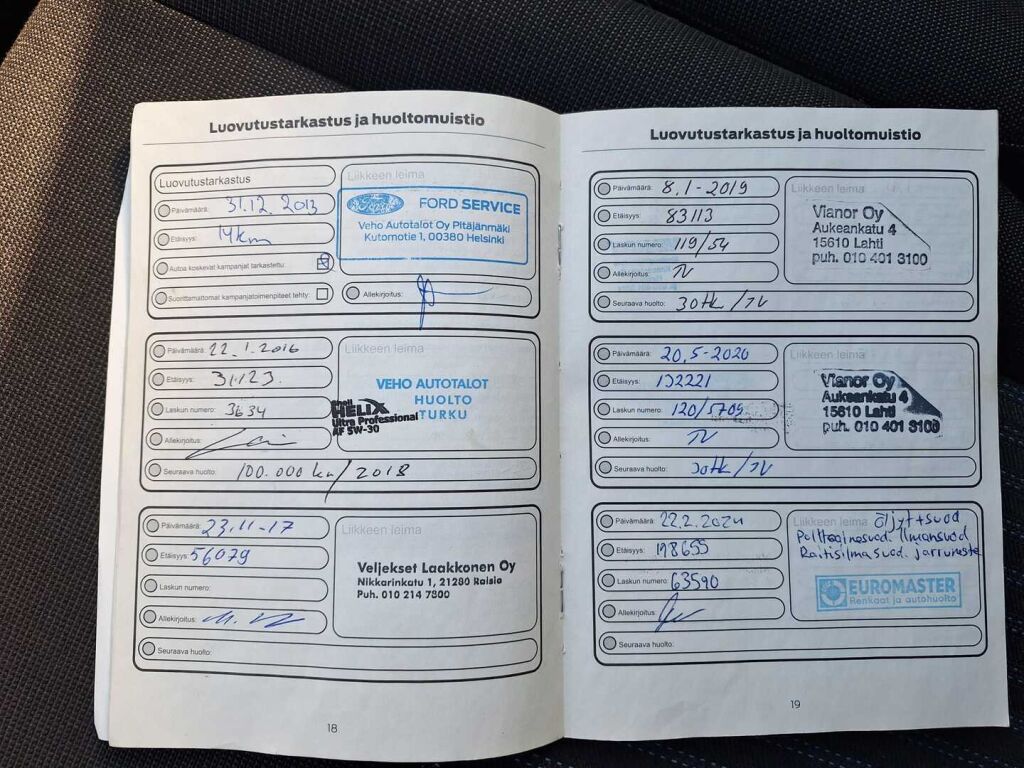 Luovutustarkastus ja huoltomuistio
Luovutustarkastus
Liikkeen leima
Päivämäärä: 31.12.2013
Etäisyys: 14km
Autoa koskevat kampanjat tarkastettu:
Suorittamattomat kampanjatoimenpiteet tehty:
Ford
FORD SERVICE
Veho Autotalot Oy Pitäjänmäki
Kutomotie 1, 00380 Helsinki
Allekirjoitus:
Päivämäärä: 22.1.2016
Etäisyys: 31123.
Laskun numero: 3634
Allekirjoitus:
Seuraava huolto: 100.000 km/2018
Liikkeen leima
VEHO AUTOTALOT
HUOLTO
TURKU
Shell
HELIX
Ultra Professional
AF 5W-30
Päivämäärä: 23.11-17
Etäisyys: 56079
Laskun numero:
Allekirjoitus:
Seuraava huolto:
Liikkeen leima
Veljekset Laakkonen Oy
Nikkarinkatu 1, 21280 Raisio
Puh. 010 214 7800
18
Luovutustarkastus ja huoltomuistio
Päivämäärä: 8.1-2019
Etäisyys: 83113
Laskun numero: 119/54
Allekirjoitus:
Seuraava huolto: 30tk/1V
Liikkeen leima
Vianor Oy
Aukeankatu 4
15610 Lahti
puh. 010 401 3100
Päivämäärä: 20.5-2020
Etäisyys: 102221
Laskun numero: 120/5709
Allekirjoitus:
Seuraava huolto: 30tk/1V
Liikkeen leima
Vianor Oy
Aukeankatu 4
15610 Lahti
puh. 010 401 3100
Päivämäärä: 22.2.2024
Etäisyys: 198655
Laskun numero: 63590
Allekirjoitus:
Seuraava huolto:
Liikkeen leima öljyt+suod
Polttoainesuod. Ilmansuod
Raitisilmasuod. jarruneste
EUROMASTER
Renkaat ja autohuolto
19